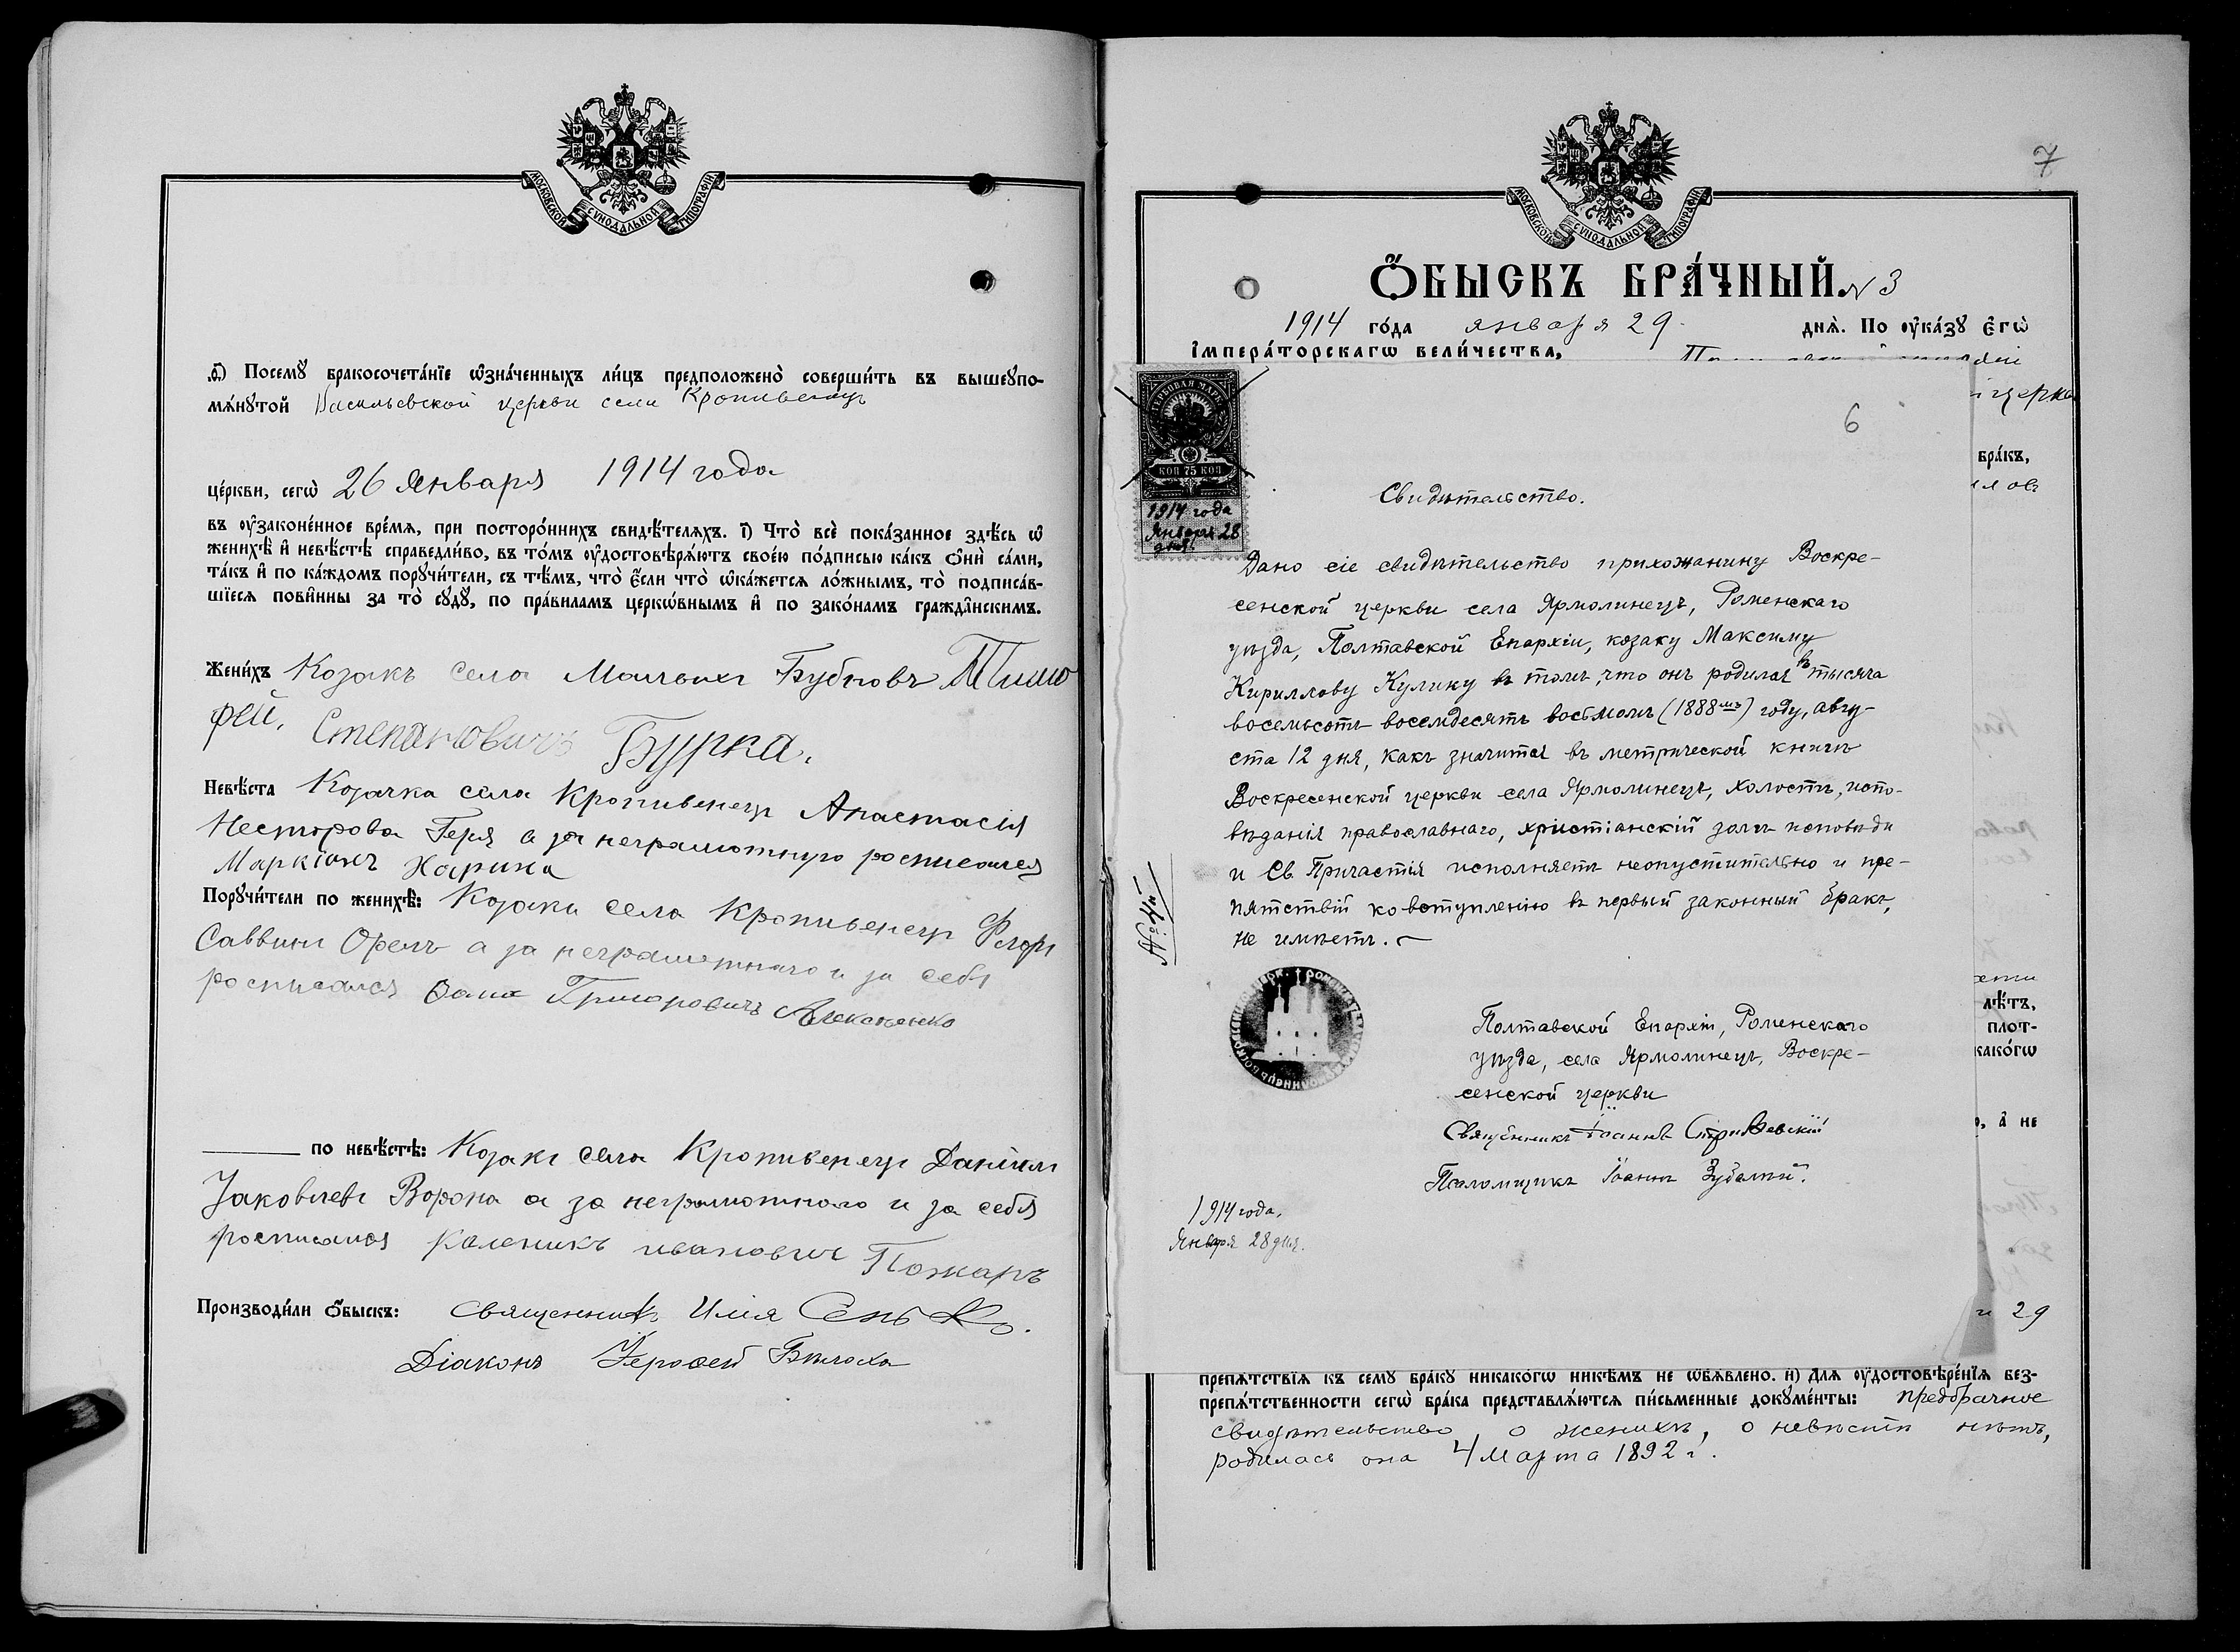 МОСКОВСКОЙ СѴНОДАЛЬНОЙ ТИПОГРАФІИ
.ѳ҃) Посемꙋ̀ бракосочета́нїе ѡ҆зна́ченныхъ ли́цъ предположено̀ соверши́ть въ вышеꙋпо-
мѧ́нꙋтой Васильевской церкви села Кропивенецъ
це́ркви, сегѡ̀ 26 Января 1914 года
въ ᲂу҆законе́нное вре́мѧ, при посторо́ннихъ свидѣ́телѧхъ. і҃) Что̀ всѐ пока́занное здѣ́сь ѡ҆
женихѣ̀ и҆ невѣ́стѣ справедли́во, въ то́мъ ᲂу҆достовѣрѧ́ютъ свое́ю по́дписью ка́къ ѻ҆нѝ са́ми,
та́къ и҆ по ка́ждомъ порꙋчи́тели, съ тѣ́мъ, что̀ є҆́сли что̀ ѡ҆ка́жетсѧ ло́жнымъ, то̀ подписа́в-
шїесѧ пови́нны за то̀ сꙋдꙋ̀, по пра́виламъ церко́внымъ и҆ по зако́намъ гражда́нскимъ.
Жени́хъ Козакъ села Малыхъ Бубновъ Тимо
фей, Степановичъ Бурка.
Невѣ́ста Козачка села Кропивенецъ Анастасія
Несторова Геря а за неграмотную росписался
Маркіанъ Харина
Порꙋчи́тели по женихѣ̀: Козаки села Кропивенецъ Флоръ
Саввинъ Орелъ а за неграмотнаго и за себя
росписался Фома Григоровичъ Алексеенко
по невѣ́стѣ: Козаки села Кропивенецъ Даніилъ
Іаковлевъ Ворона а за неграмотнаго и за себя
росписался Каленикъ ивановичъ Пожаръ
Производи́ли ѻ҆́быскъ: священникъ Илія Сенько.
Діаконъ Іерофей Бѣлоха
МОСКОВСКОЙ СѴНОДАЛЬНОЙ ТИПОГРАФІИ
7
Ѻ҆́БЫСКЪ БРА́ЧНЫЙ N 3
1914 го́да января 29 днѧ̀. По ᲂу҆ка́зꙋ є҆гѡ̀
і҆мпера́торскагѡ вели́чества,
церкв
6
бра́къ,
ГЕРБОВАЯ МАРКА
КОП 75 КОП
1914 года
Января 28
дня.
Свидѣтельство.
Дано сіе свидѣтельство прихожанину Воскре-
сенской церкви села Ярмолинецъ, Роменскаго
уѣзда, Полтавской Епархіи, козаку Максиму
Кириллову Кулику въ томъ, что онъ родился въ тысяча
восемьсотъ восемдесятъ восьмомъ (1888мъ) году, авгу-
ста 12 дня, какъ значится въ метрической книгѣ
Воскресенской церкви села Ярмолинецъ, холостъ, испо-
вѣданія православнаго, христіанскій долгъ исповѣди
и Св. Причастія исполняетъ неопустительно и пре-
пятствій ко вступленію въ первый законный бракъ,
не имѣетъ.
№ 4й
Полтавской Епархіи, Роменскаго
уѣзда, села Ярмолинецъ, Воскре-
сенской церкви
Священникъ Іоаннъ
Псаломщикъ Іоаннъ Зубалій.
1914 года,
Января 28 дня.
лѣ́тъ,
плот-
како́гѡ
а҆ не
и 29
препѧ́тствїѧ къ семꙋ̀ бра́кꙋ никако́гѡ никѣ́мъ не ѡ҆б̾ѧ́влено. и҃) Длѧ̀ ᲂу҆достовѣре́нїѧ без-
препѧ́тственности сегѡ̀ бра́ка представлѧ́ютсѧ пи́сьменные докꙋме́нты: предбрачное
свидѣтельство о женихѣ, о невѣстѣ нѣтъ,
родилась она 4 марта 1892 г.